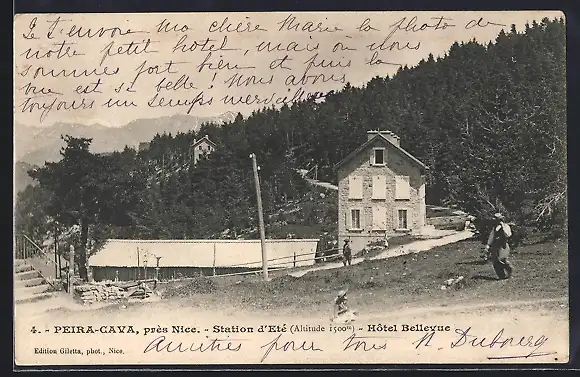 Je t'envoie ma chère Marie la photo de
notre petit hôtel, mais on nous
sommes fort bien et puis la
vue est si belle! nous avons
toujours un temps merveilleux
4. - PEIRA-CAVA, près Nice. - Station d'Eté (Altitude 1500m) - Hôtel Bellevue
Edition Giletta, phot., Nice.
Amitiés pour tous N. Dubourg